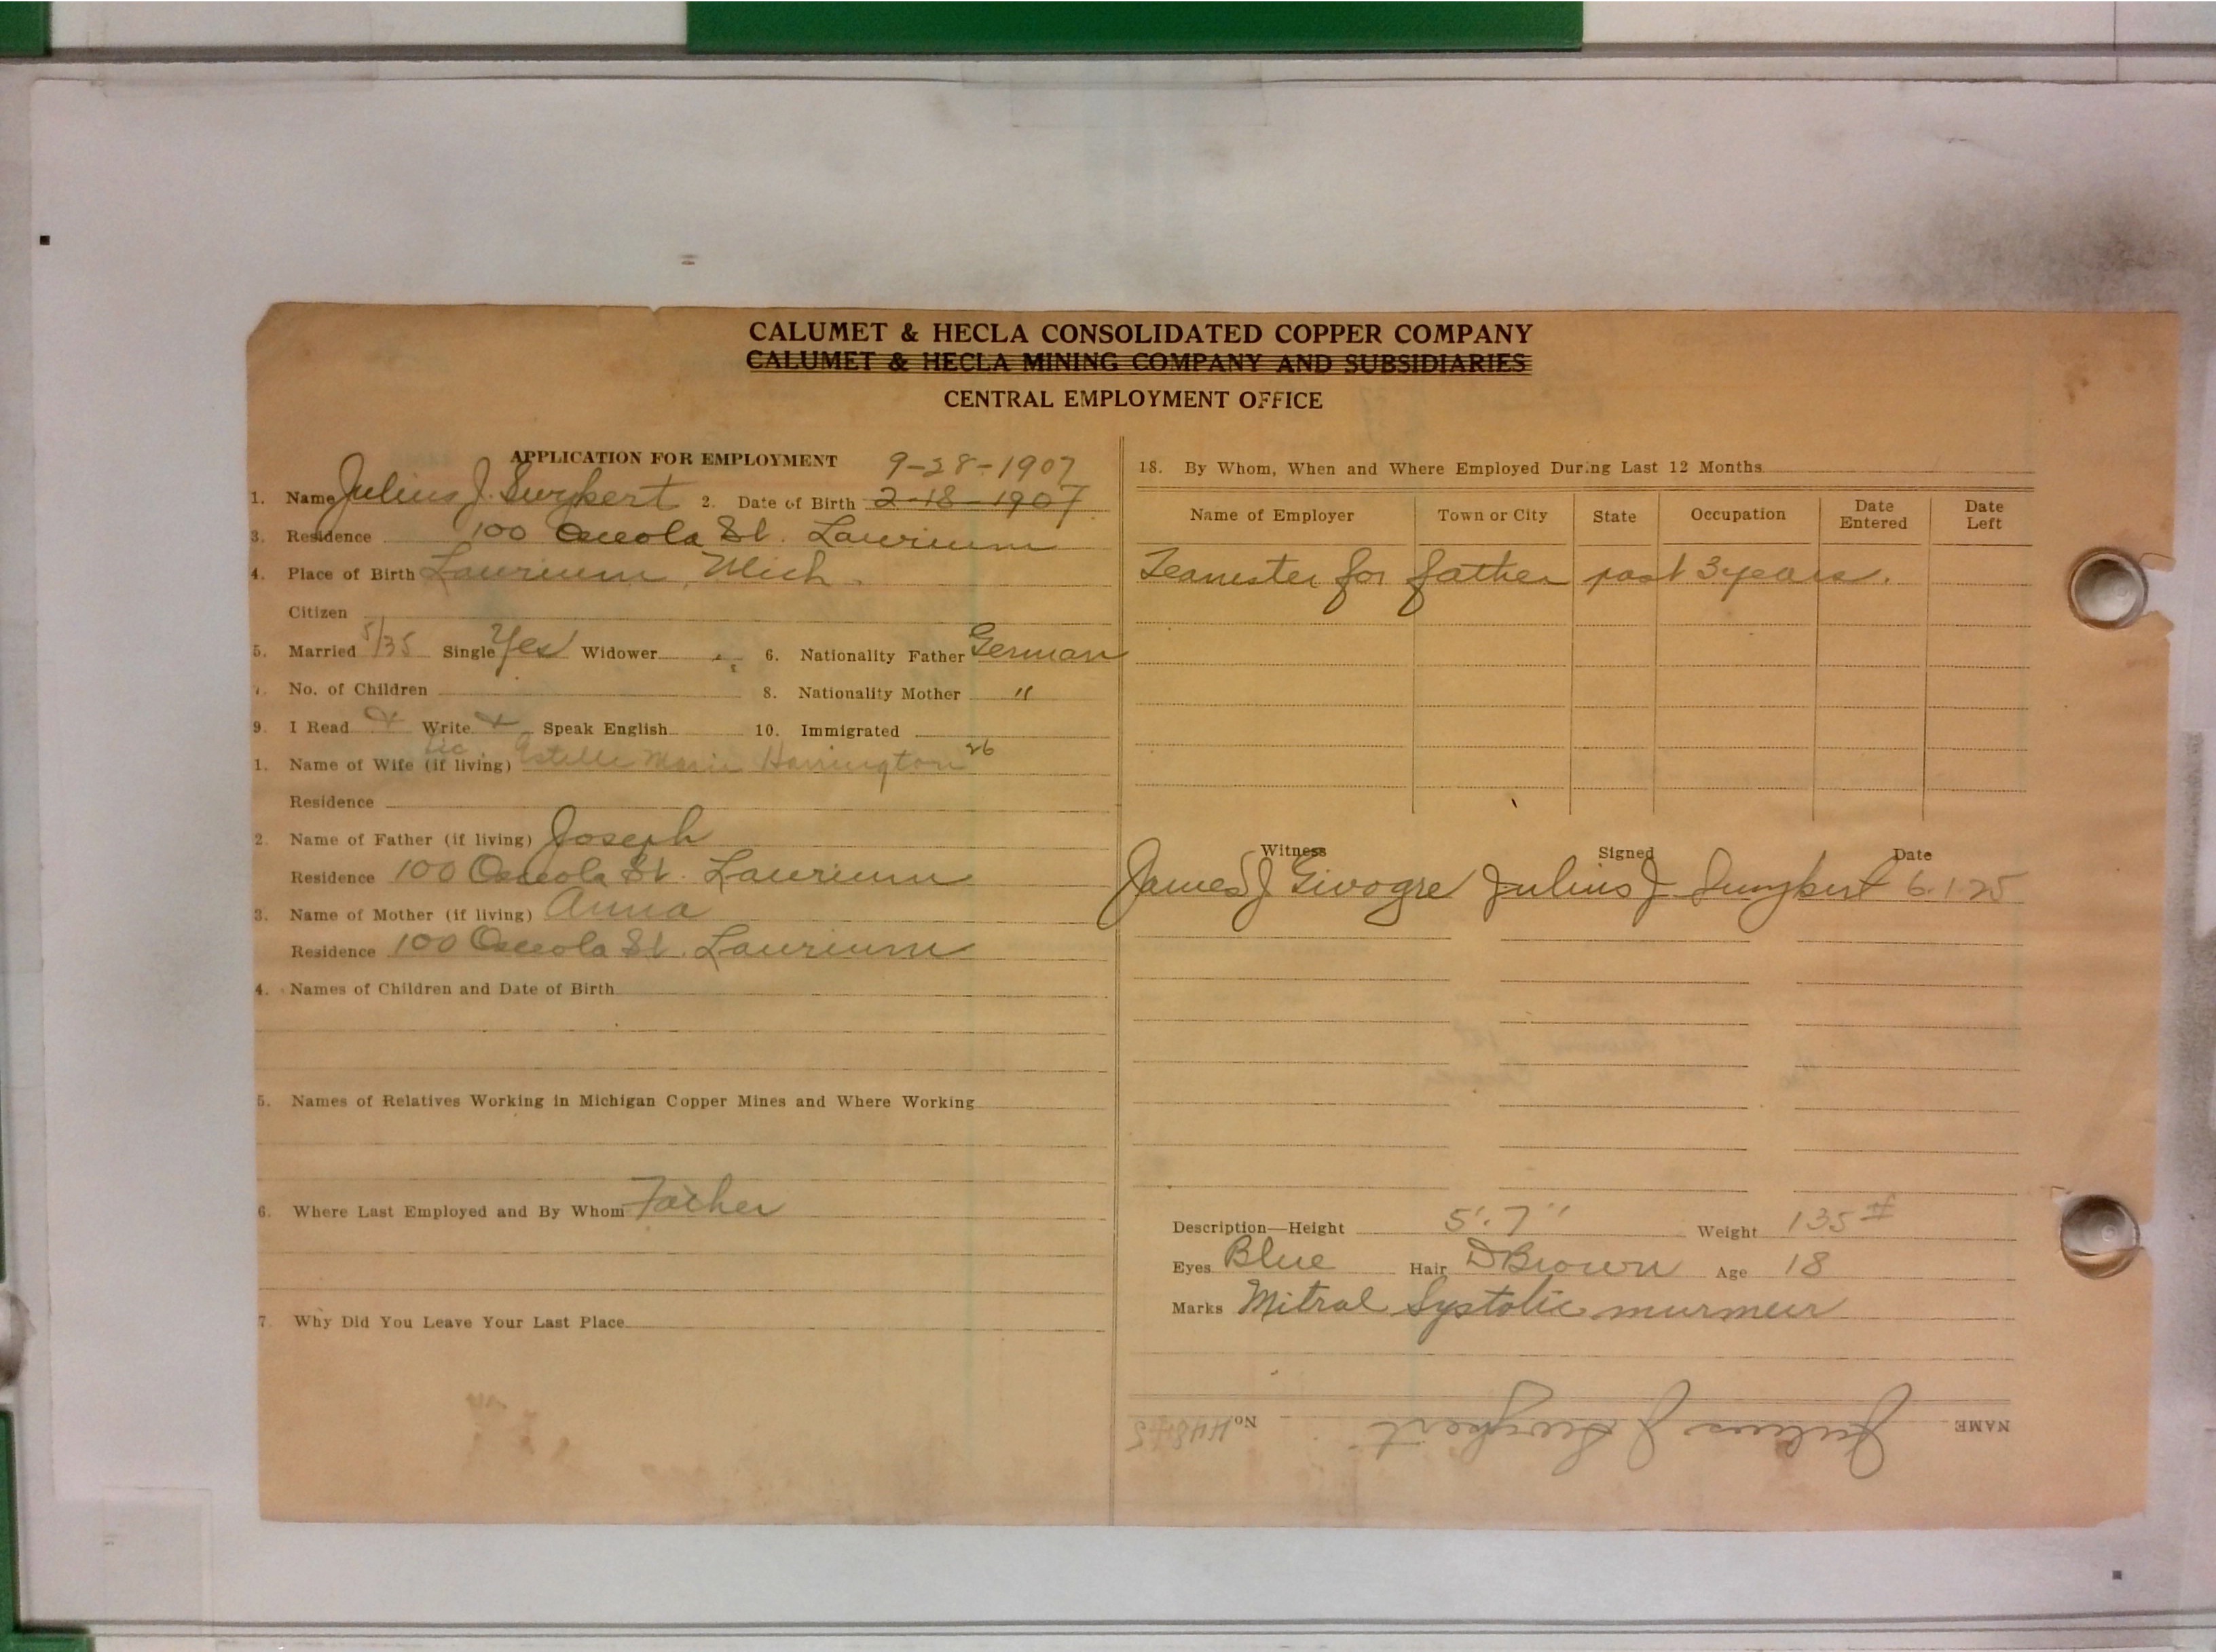 CALUMET & HECLA CONSOLIDATED COPPER COMPANY
CALUMET & HECLA MINING COMPANY AND SUBSIDIARIES
CENTRAL EMPLOYMENT OFFICE
APPLICATION FOR EMPLOYMENT 9-28-1907
1. Name Julius J. 2. Date of Birth 2-18-1907
3. Residence 100 Osceola St. Laurium
4. Place of Birth Laurium, Mich.
Citizen
5. Married 5/35 Single Yes Widower 6. Nationality Father German
7. No. of Children 8. Nationality Mother "
9. I Read Write Speak English 10. Immigrated
Lic
1. Name of Wife (if living) Estelle Marie Harrington 26
Residence
2. Name of Father (if living) Joseph
Residence 100 Osceola St. Laurium
3. Name of Mother (if living) Anna
Residence 100 Osceola St. Laurium
4. Names of Children and Date of Birth
5. Names of Relatives Working in Michigan Copper Mines and Where Working
6. Where Last Employed and By Whom Father
7. Why Did You Leave Your Last Place
18. By Whom, When and Where Employed During Last 12 Months
Name of Employer Town or City State Occupation Date Entered Date Left
Teamster for father past 3 years.
Witness Signed Date
James J Givogre Julius J 6-1-25
Description—Height 5'.7" Weight 135#
Eyes Blue Hair D Brown Age 18
Marks Mitral Systolic murmur
NAME Julius J No.